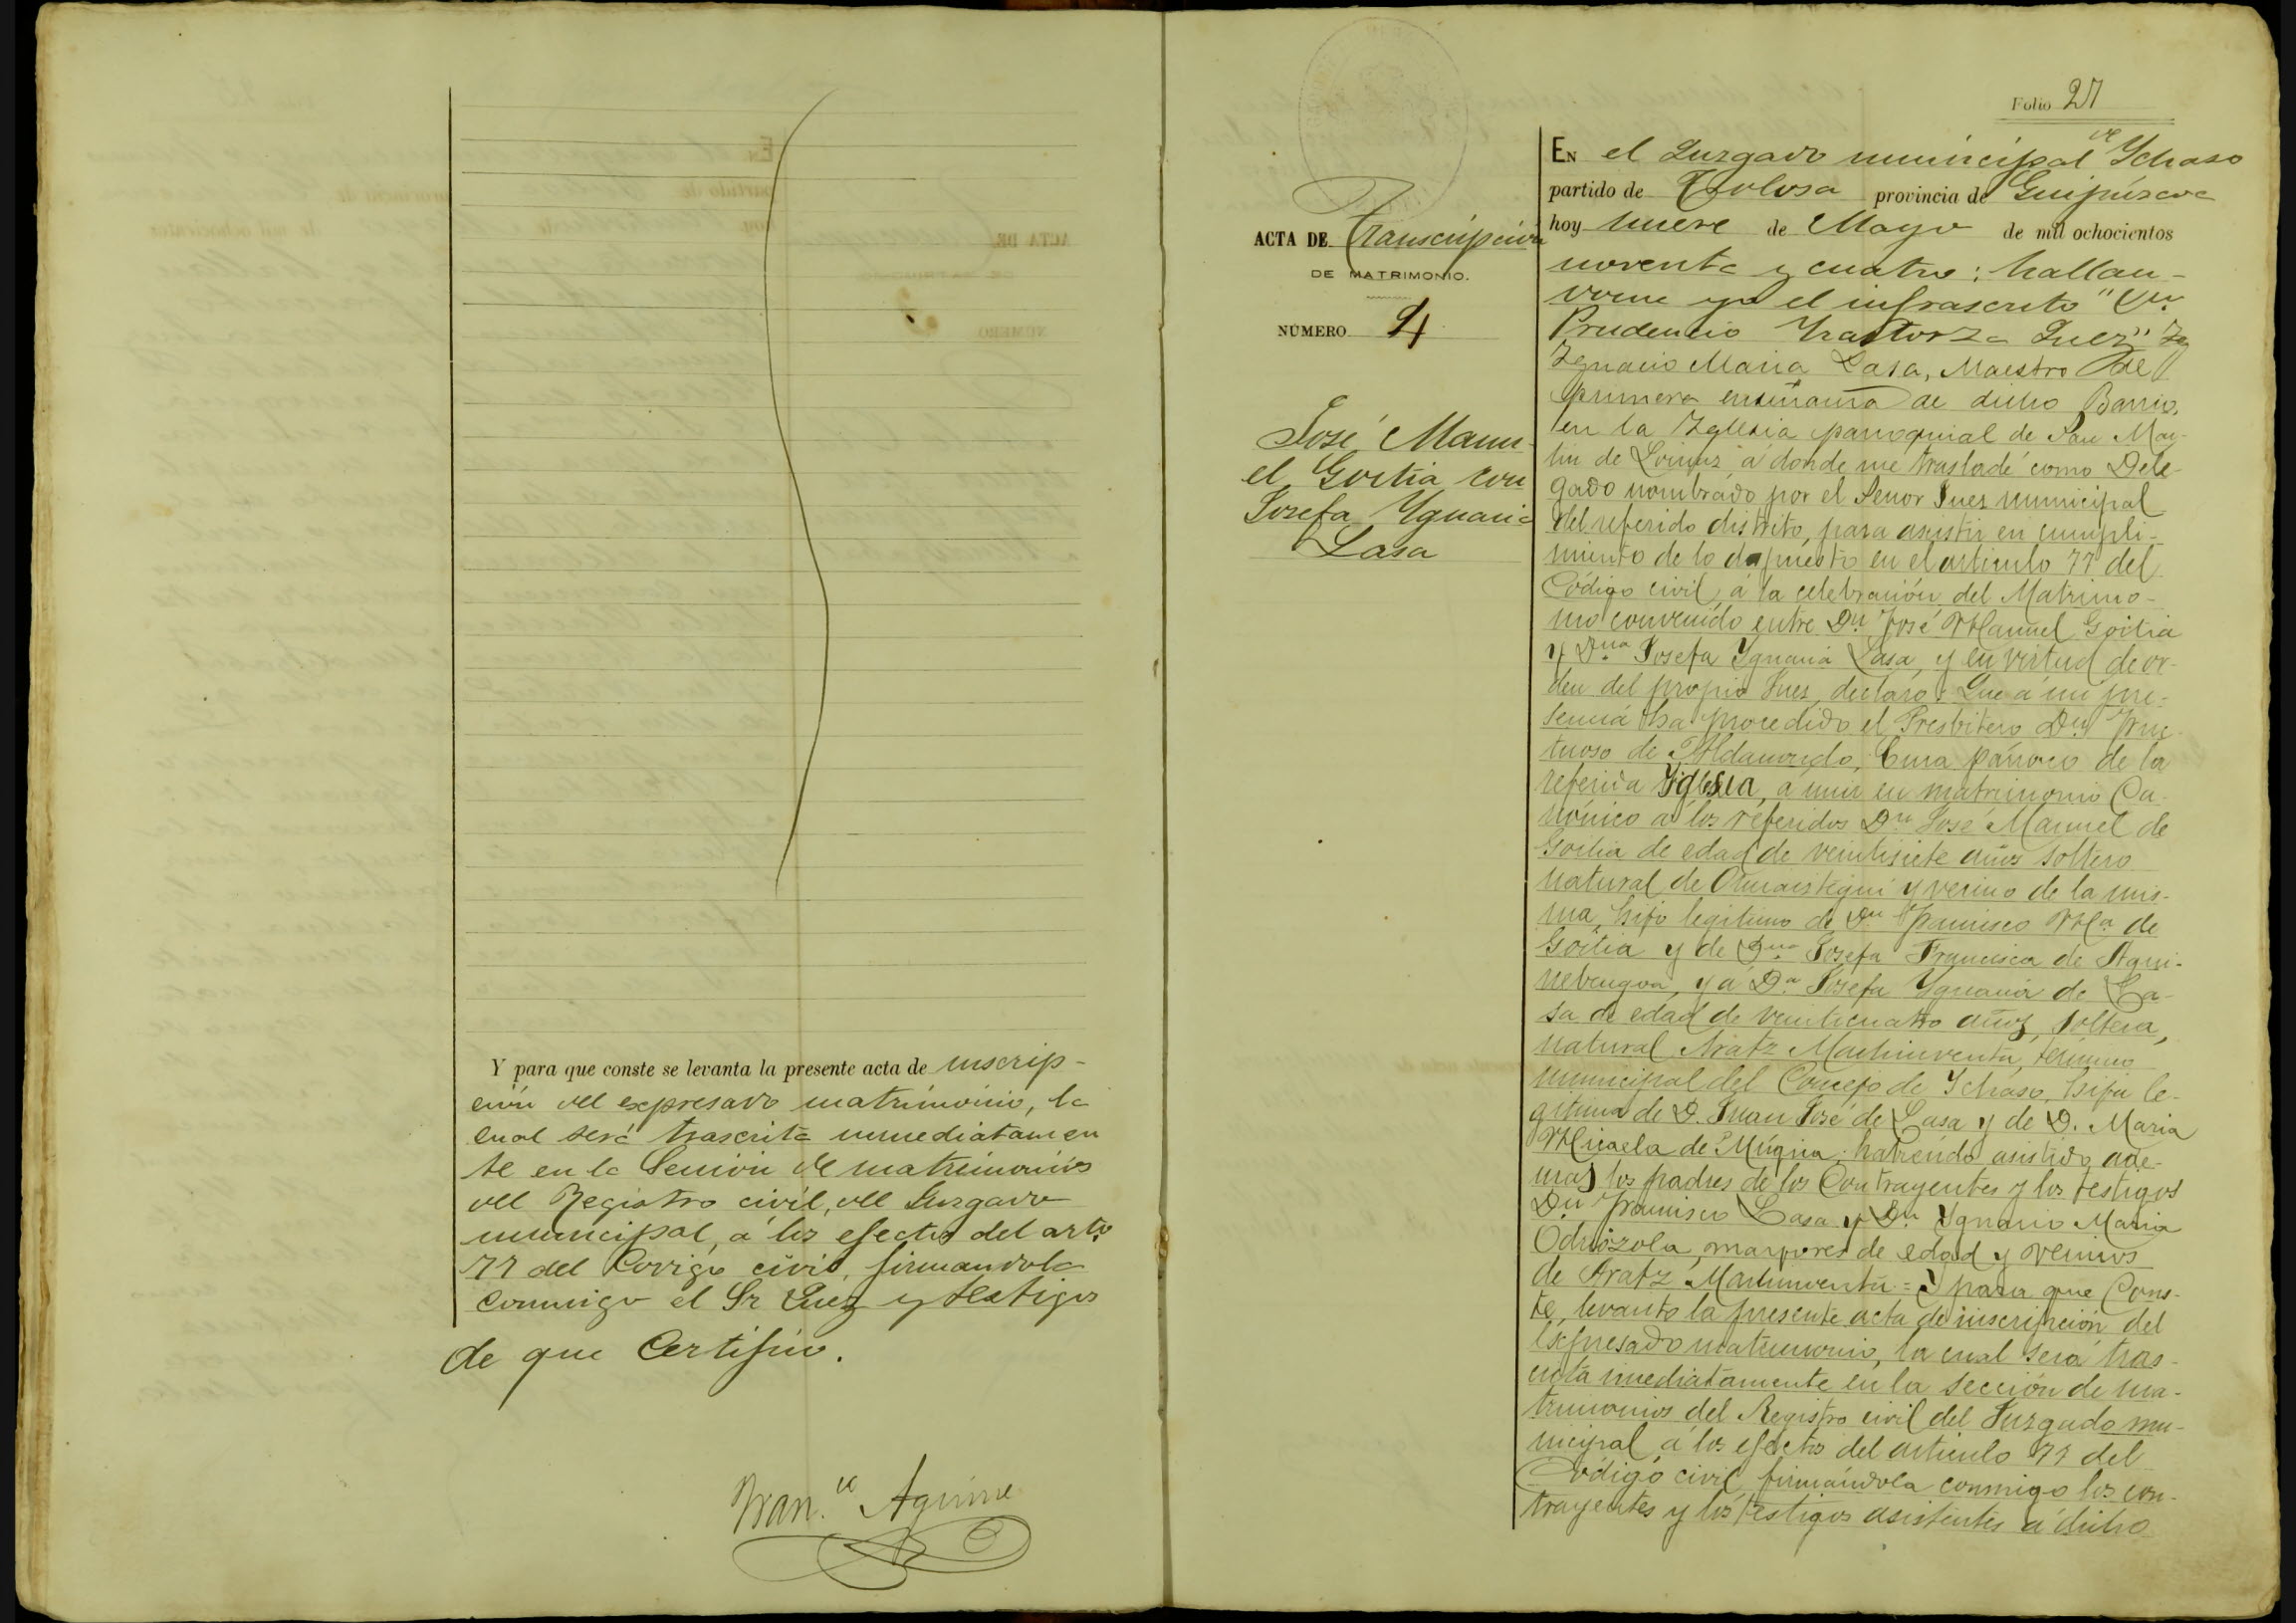 Y para que conste se levanta la presente acta de inscrip-
ción del expresado matrimonio, la
cual será trascrita inmediatamen
te en la Sección de matrimonios
del Registro civil, del Juzgado
municipal, á los efectos del arto
77 del Codigo civil, firmandola
conmigo el Sr Juez y testigos
de que Certifico.
Fran.co Aguirre
Folio 27
ACTA DE Transcripción
DE MATRIMONIO.
NÚMERO 4
José Manu-
el Goitia con
Josefa Ygnacia
Lasa
EN el Juzgado municipal de Ychaso
partido de Tolosa provincia de Guipúzcoa
hoy nueve de Mayo de mil ochocientos
noventa y cuatro: hallan-
dome yo el infrascrito "Dn
Prudencio Juez"
Ygnacio Maria Lasa, Maestro de
primera enseñanza de dicho Barrio,
en la Yglesia parroquial de San Mar-
tin de á donde me trasladé como Dele-
gado nombrado por el Señor Juez municipal
del referido distrito, para asistir en cumpli-
miento de lo dispuesto en el articulo 77 del
Código civil, á la celebración del Matrimo-
nio convenido entre Dn José Manuel Goitia
y Dna Josefa Ygnacia Lasa, y en virtud de or-
den del propio Juez, declaro: Que á mi pre-
sencia ha procedido el Presbitero Dn Fruc-
tuoso de Aldamondo, Cura párroco de la
referida Yglesia, á unir en matrimonio Ca-
nónico á los referidos Dn José Manuel de
Goitia de edad de veintisiete años soltero
natural de Ormaistegui y vecino de la mis-
ma, hijo legitimo de Dn Francisco Ma de
Goitia y de Dna Josefa Francisca de Agui-
rrebengoa, y á Da Josefa Ygnacia de La-
sa de edad de veinticuatro años, soltera,
natural Aratz Machinventa, término
municipal del Concejo de Ychaso, hija le-
gitima de D. Juan José de Lasa y de D. Maria
Micaela de Múgica; habiendo asistido ade-
mas los padres de los Contrayentes y los testigos
Dn Francisco Lasa y Dn Ygnacio Maria
Odriozola, mayores de edad y vecinos
de Aratz Machinventa = Y para que Cons-
te, levanto la presente acta de inscripción del
expresado matrimonio, la cual será tras-
crita imediatamente en la sección de ma-
trimonios del Registro civil del Juzgado mu-
nicipal, á los efectos del articulo 77 del
Código civil, firmándola conmigo los con-
trayentes y los testigos asistentes á dicho